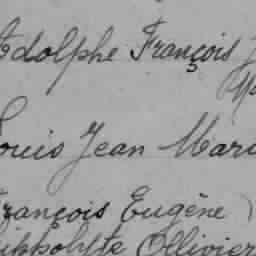 Adolphe François
Louis Jean Mari
François Eugène
Hippolyte Ollivier